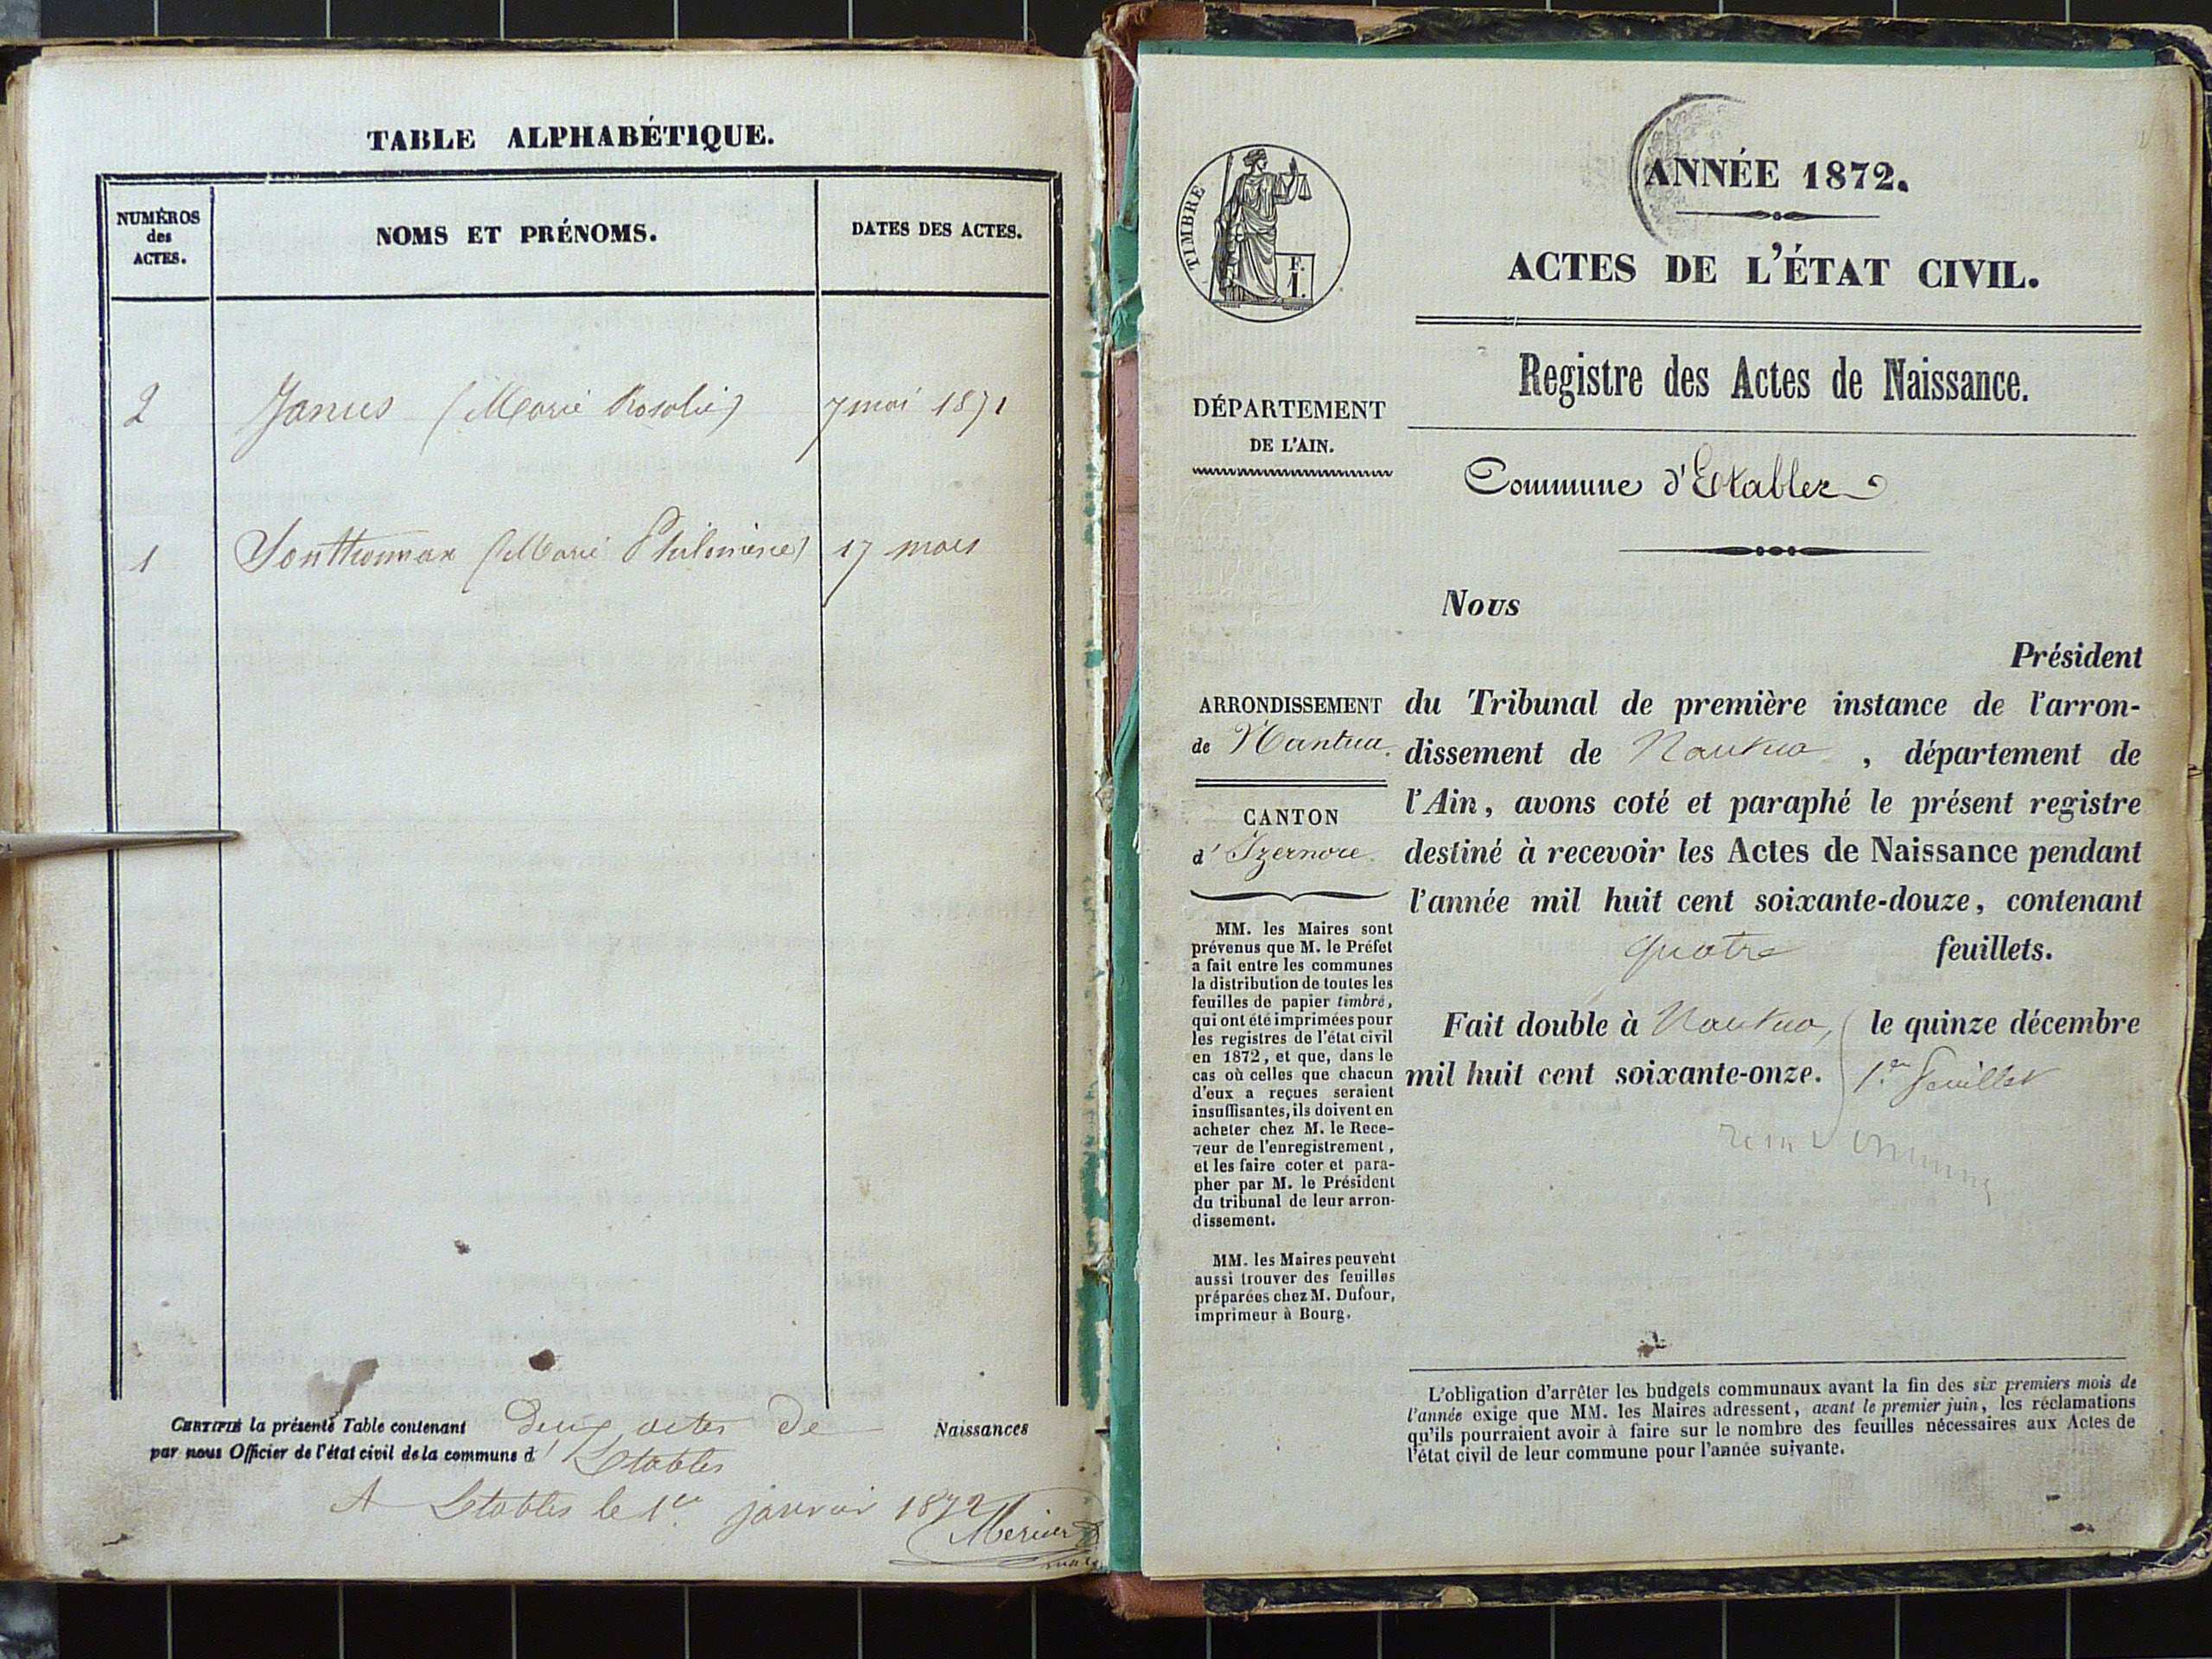 TABLE ALPHABÉTIQUE.
NUMÉROS
des
ACTES.
NOMS ET PRÉNOMS.
DATES DES ACTES.
2 Janus (Marie Rosalie) 7 mai 1871
1 Sonthonnax (Marie Philomène) 17 mars
CERTIFIÉ la présente Table contenant Deux actes De Naissances
par nous Officier de l'état civil de la commune d' Etables
A Etables le 1er janvier 1872
Mercier
maire
ANNÉE 1872.
ACTES DE L'ÉTAT CIVIL.
TIMBRE
F.
I.
Registre des Actes de Naissance.
DÉPARTEMENT
DE L'AIN.
Commune d'Etables
Nous
Président
ARRONDISSEMENT
de Nantua.
CANTON
d' Izernore.
du Tribunal de première instance de l'arron-
dissement de Nantua, département de
l'Ain, avons coté et paraphé le présent registre
destiné à recevoir les Actes de Naissance pendant
l'année mil huit cent soixante-douze, contenant
quatre feuillets.
Fait double à Nantua, le quinze décembre
mil huit cent soixante-onze.
1er feuillet
MM. les Maires sont
prévenus que M. le Préfet
a fait entre les communes
la distribution de toutes les
feuilles de papier timbré,
qui ont été imprimées pour
les registres de l'état civil
en 1872, et que, dans le
cas où celles que chacun
d'eux a reçues seraient
insuffisantes, ils doivent en
acheter chez M. le Rece-
veur de l'enregistrement,
et les faire coter et para-
pher par M. le Président
du tribunal de leur arron-
dissement.
MM. les Maires peuvent
aussi trouver des feuilles
préparées chez M. Dufour,
imprimeur à Bourg.
L'obligation d'arrêter les budgets communaux avant la fin des six premiers mois de
l'année exige que MM. les Maires adressent, avant le premier juin, les réclamations
qu'ils pourraient avoir à faire sur le nombre des feuilles nécessaires aux Actes de
l'état civil de leur commune pour l'année suivante.